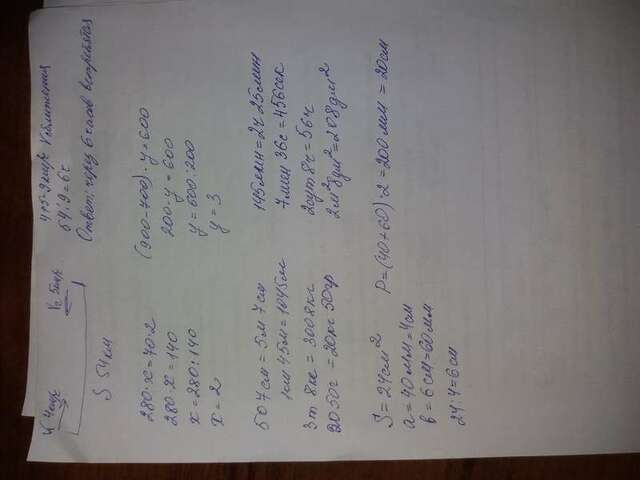 V₁ 4км/ч V₂ 5км/ч
S 54 км
4+5=9км/ч V сближения
54:9=6ч
Ответ: через 6 часов встретятся
280·x=70·2
280·x=140
x=280:140
x=2
(900-700)·y=600
200·y=600
y=600:200
y=3
507см=5м 7см
1км 45м=1045м
3т 8кг=3008кг
2050г=20кг 50гр
145мин=2ч 25мин
7мин 36с=456сек
2сут 8ч=56ч
2м²8дм²=208дм²
S=24см²
a=40мм=4см
b=6см=60мм
24:4=6см
P=(40+60)·2=200мм=20см